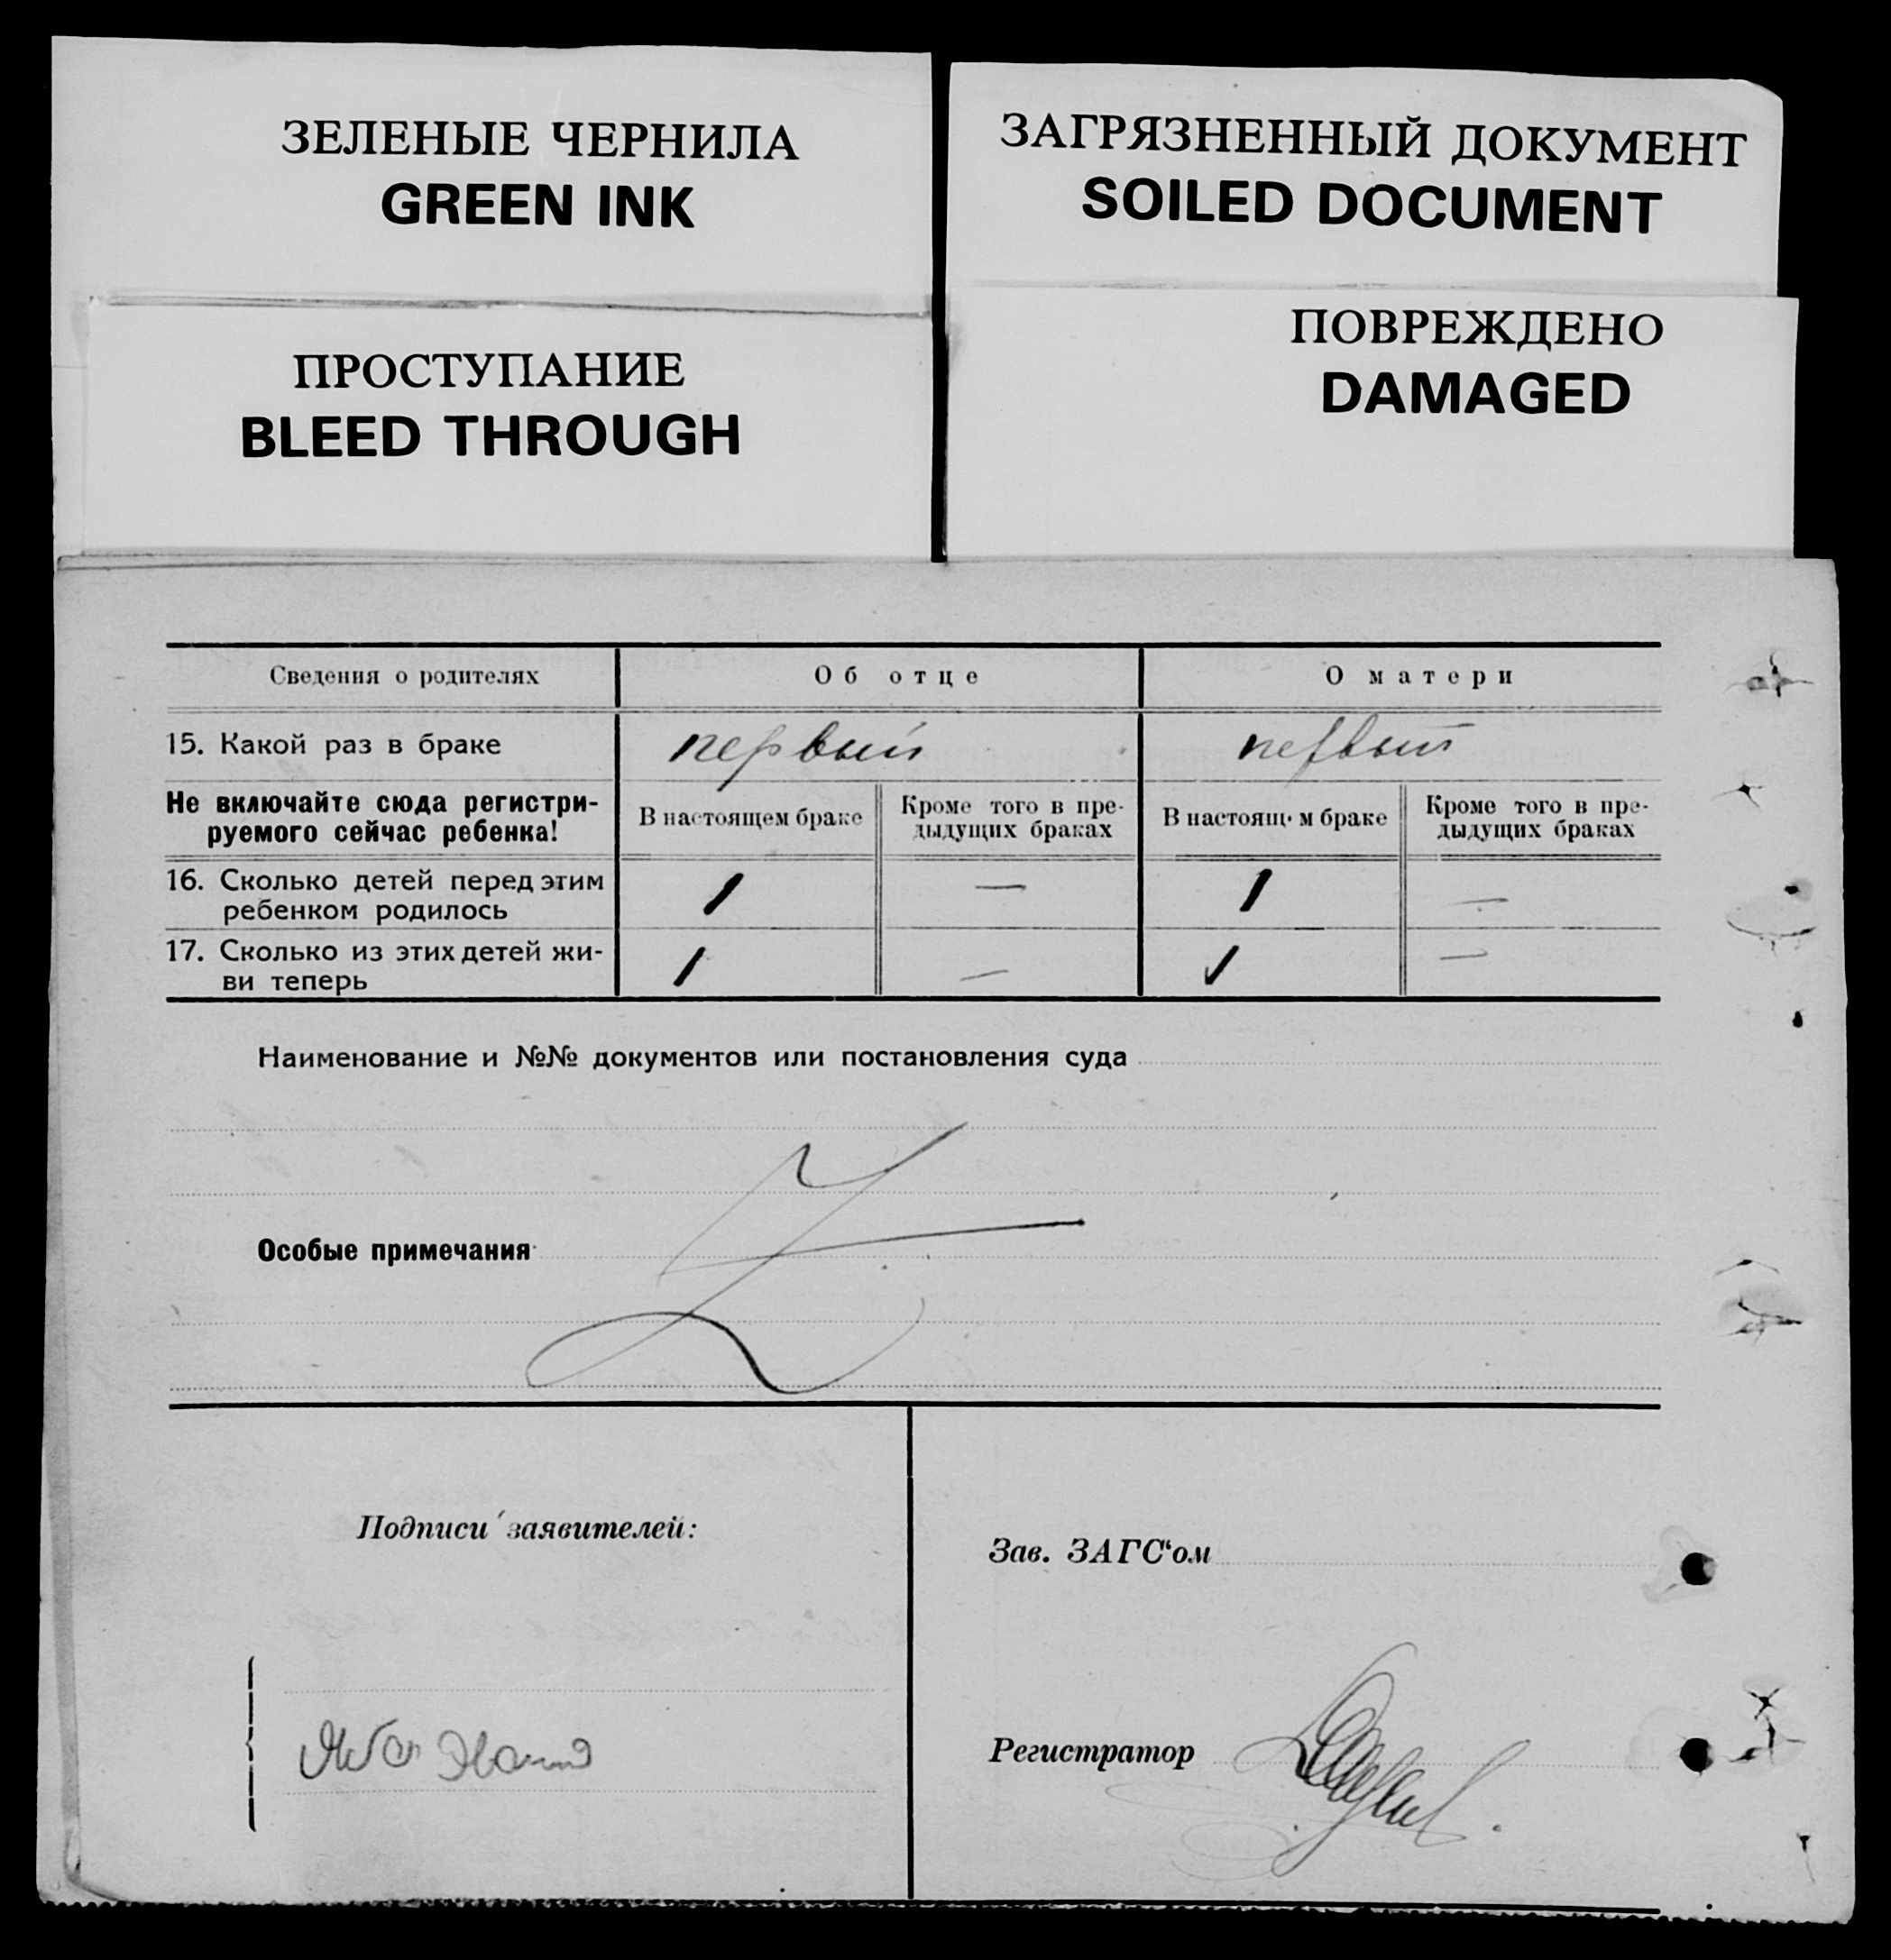 ЗЕЛЕНЫЕ ЧЕРНИЛА
GREEN INK
ЗАГРЯЗНЕННЫЙ ДОКУМЕНТ
SOILED DOCUMENT
ПРОСТУПАНИЕ
BLEED THROUGH
ПОВРЕЖДЕНО
DAMAGED
Сведения о родителях Об отце О матери
15. Какой раз в браке первый первый
Не включайте сюда регистри-
руемого сейчас ребенка!
В настоящем браке
Кроме того в пре-
дыдущих браках
В настоящ м браке
Кроме того в пре-
дыдущих браках
16. Сколько детей перед этим
ребенком родилось
1 — 1 —
17. Сколько из этих детей жи-
ви теперь
1 — 1 —
Наименование и №№ документов или постановления суда
Особые примечания
Подписи заявителей:
Зав. ЗАГС‘ом
Регистратор